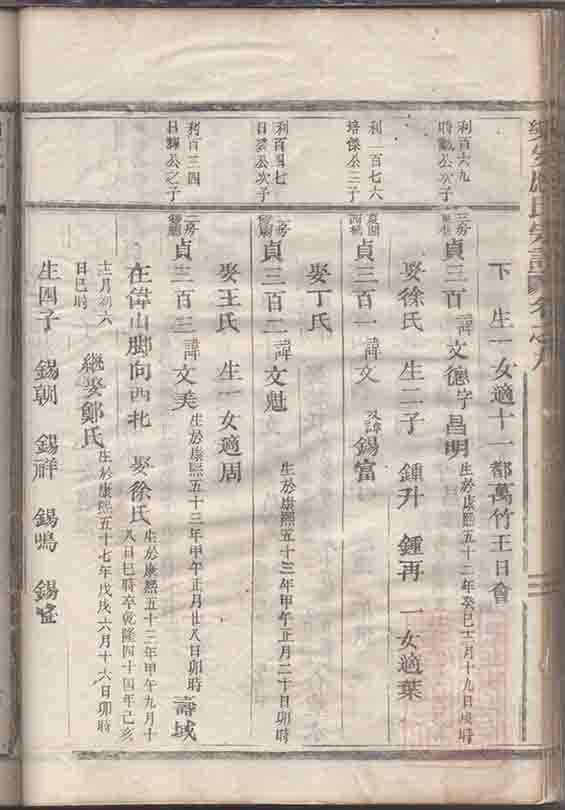 下 生一女適十一都萬竹王日會
利百六九
公次子
三房
貞三百 諱文德字昌明 生於康熙五十二年癸巳十二月十九日戌時
娶徐氏 生二子 鍾升 鍾再 一女適葉
利一百七六
培傑公三子
貞三百一 諱文 改諱錫富
娶丁氏
利百四七
日公次子
貞三百二 諱文魁 生於康熙五十三年甲午正月二十日卯時
娶王氏 生一女適周
利百三四
日公之子
貞三百三 諱文美 生於康熙五十三年甲午正月廿八日卯時 壽域
在偉山脚向西北 娶徐氏 生於康熙五十三年甲午九月十
八日巳時卒乾隆四十四年己亥
十二月初六
日巳時 繼娶鄭氏 生於康熙五十七年戊戌六月十六日卯時
生四子 錫朝 錫祥 錫鳴 錫